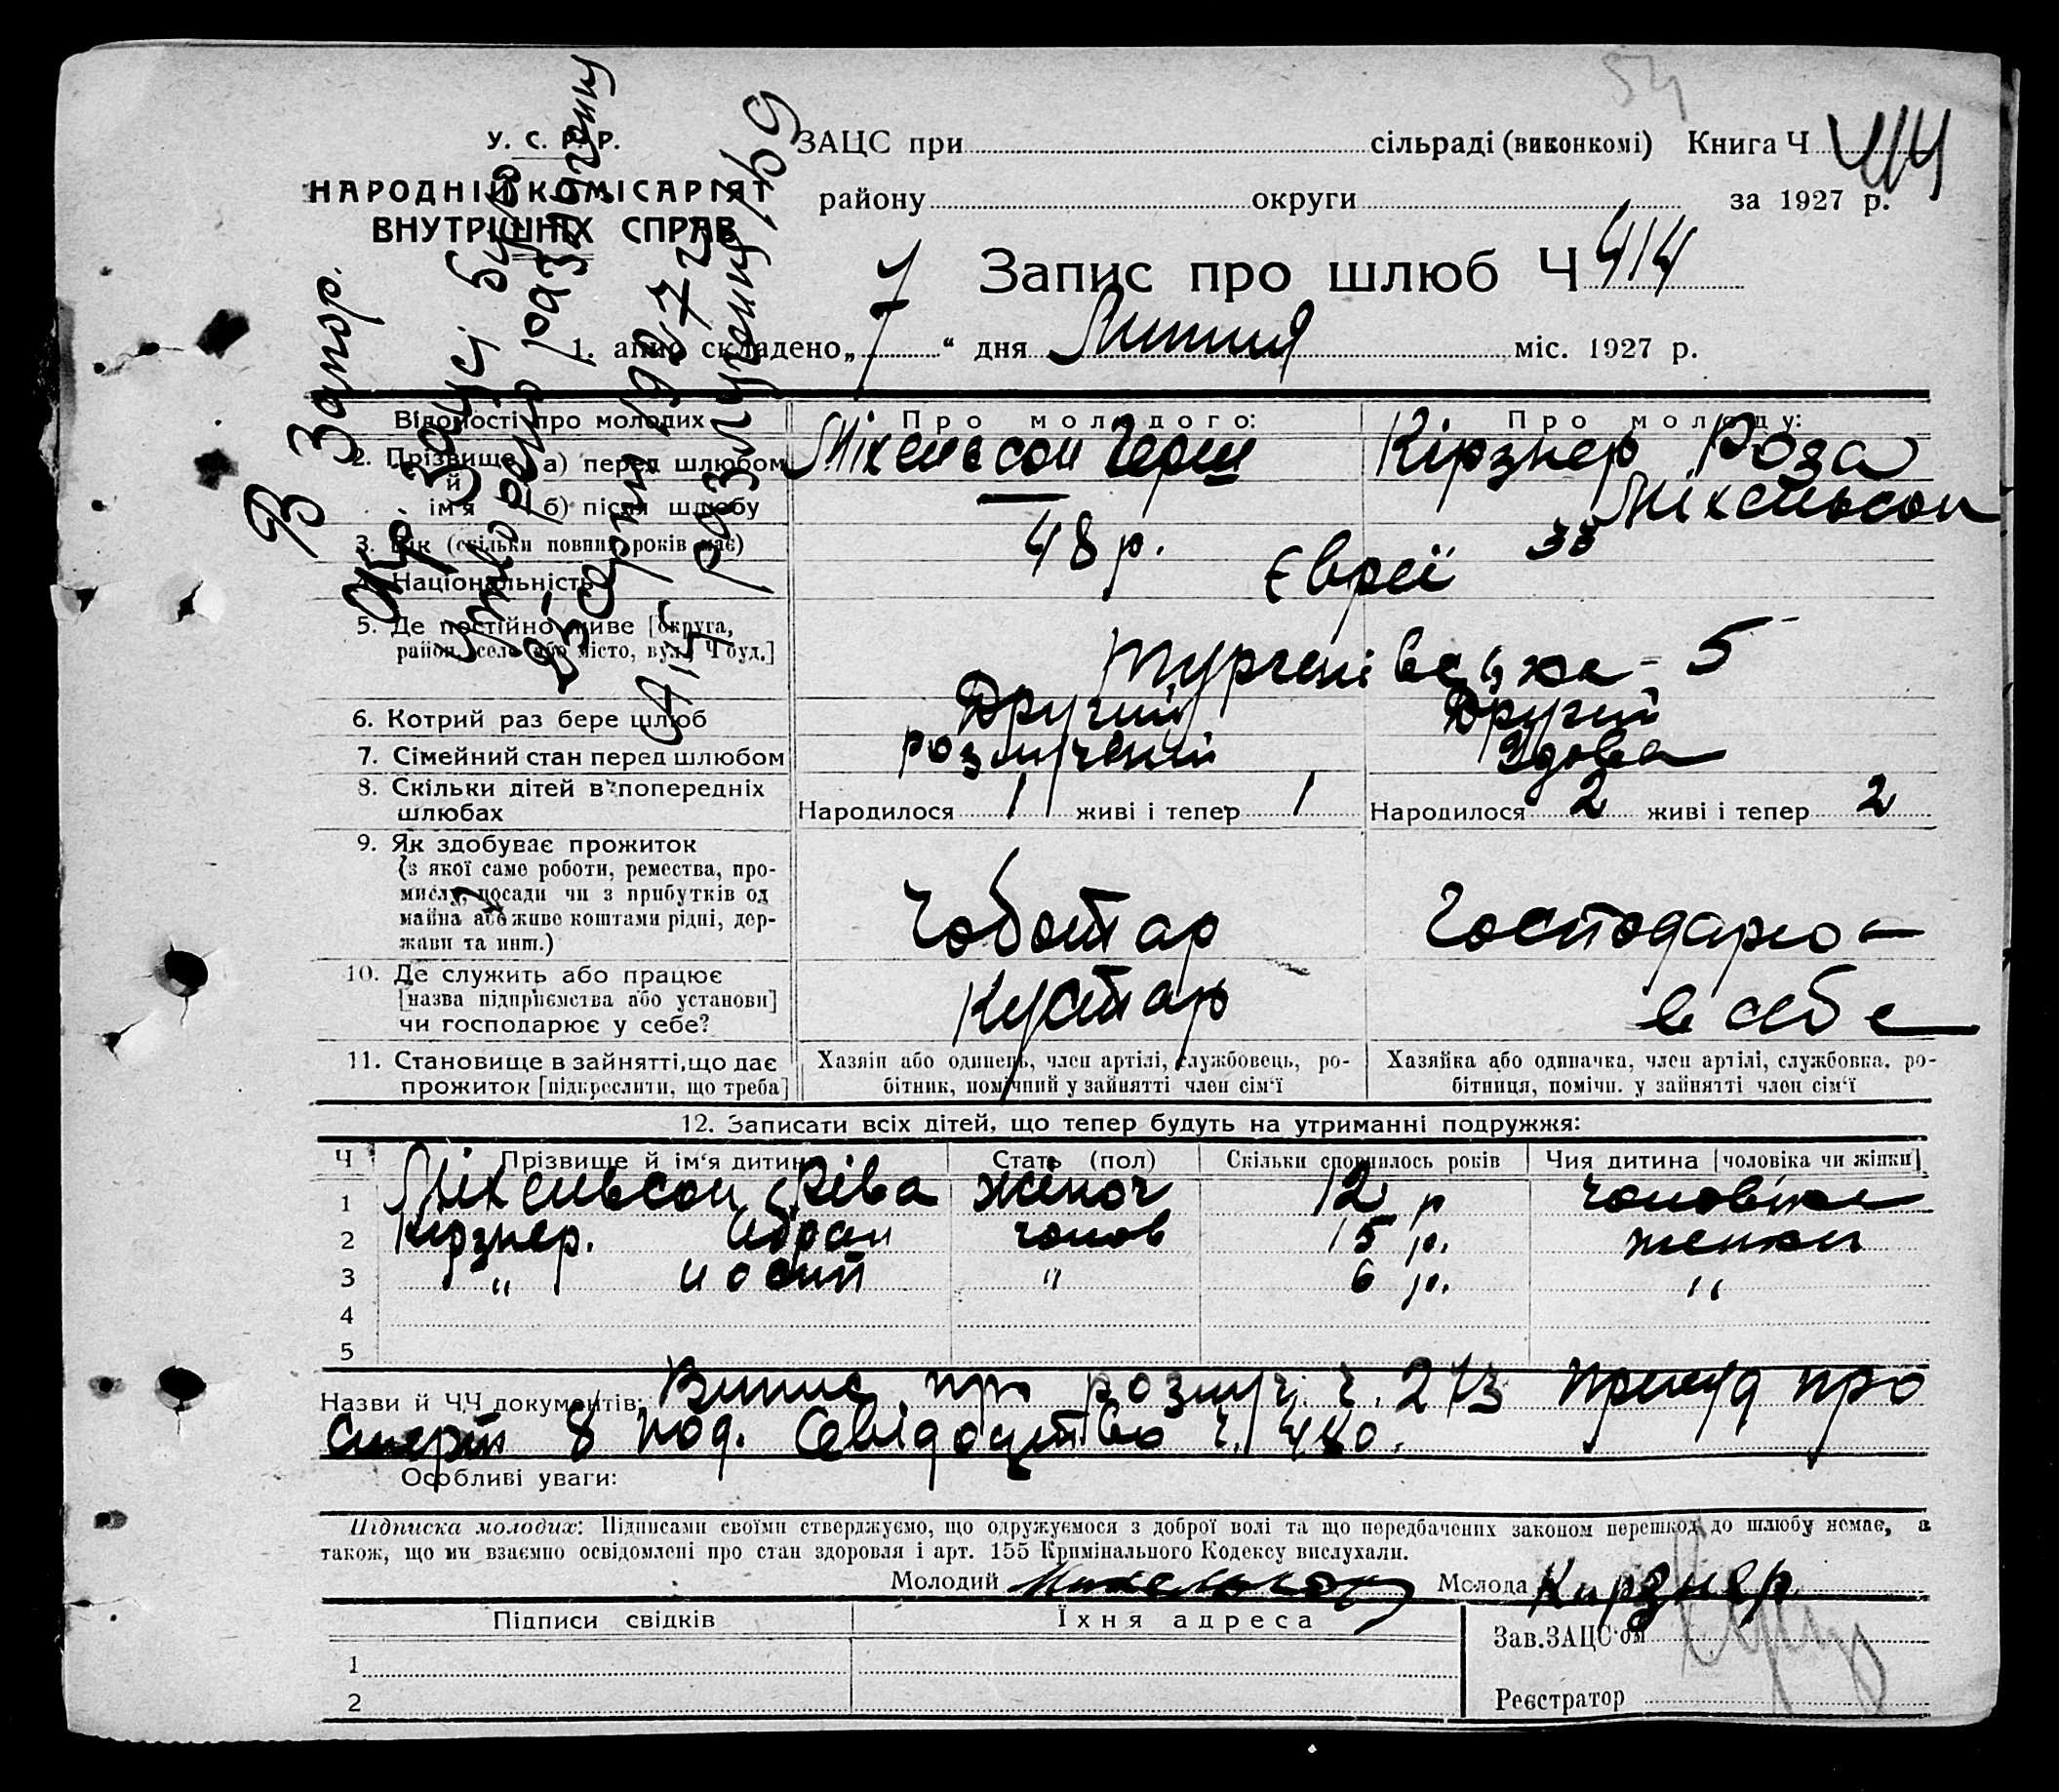 54
У. С. Р. Р.
НАРОДНІЙ КОМІСАРІЯТ
ВНУТРІШНІХ СПРАВ
ЗАЦС при сільраді (виконкомі) Книга Ч 414
району округи за 1927 р.
Запис про шлюб Ч 414
1. апис складено „7“ дня Липня міс. 1927 р.
В Запор.
окр. Загсі
1927 р.
Відомості про молодих
Про молодого:
Про молоду:
2. Прізвище й ім'я
а) перед шлюбом
Міхельсон Герш
Кірзнер Роза
б) після шлюбу
—
Міхельсон
3. Вік (скільки повних років має)
48 р.
33
4. Національність
Євреї
5. Де постійно живе [округа,
район, село або місто, вул., Ч буд.]
Тургенівська - 5
6. Котрий раз бере шлюб
Другий
Другий
7. Сімейний стан перед шлюбом
розлучений
Вдова
8. Скільки дітей в попередніх
шлюбах
Народилося 1 живі і тепер 1
Народилося 2 живі і тепер 2
9. Як здобуває прожиток
(з якої саме роботи, ремества, про-
мислу, посади чи з прибутків од
майна або живе коштами рідні, дер-
жави та инш.)
Чоботар
Господарює
10. Де служить або працює
[назва підприємства або установи]
чи господарює у себе?
Кустар
в себе
11. Становище в зайнятті, що дає
прожиток [підкреслити, що треба]
Хазяін або одинець, член артілі, службовець, ро-
бітник, помічний у зайнятті член сім'ї
Хазяйка або одиначка, член артілі, службовка, ро-
бітниця, помічн. у зайнятті член сім'ї
12. Записати всіх дітей, що тепер будуть на утриманні подружжя:
Ч Прізвище й ім'я дитини Стать (пол) Скільки сповнилось років Чия дитина [чоловіка чи жінки]
1 Міхельсон Рева жіноч 12 р чоловіка
2 Кірзнер. Абрам чолов 15 р. женки
3 „ Иосип „ 6 р. „
4
5
Назви й ЧЧ документів: Випис про розлуч. ч. 273 про
смерть 8 под. Свідоцтво ч. 440.
Особливі уваги:
Підписка молодих: Підписами своїми стверджуємо, що одружуємося з доброї волі та що передбачених законом перешкод до шлюбу немає, а
також, що ми взаємно освідомлені про стан здоровля і арт. 155 Кримінального Кодексу вислухали.
Молодий Михельсон Молода Кирзнер
Підписи свідків
Їхня адреса
Зав. ЗАЦС'ом
1
2
Реєстратор